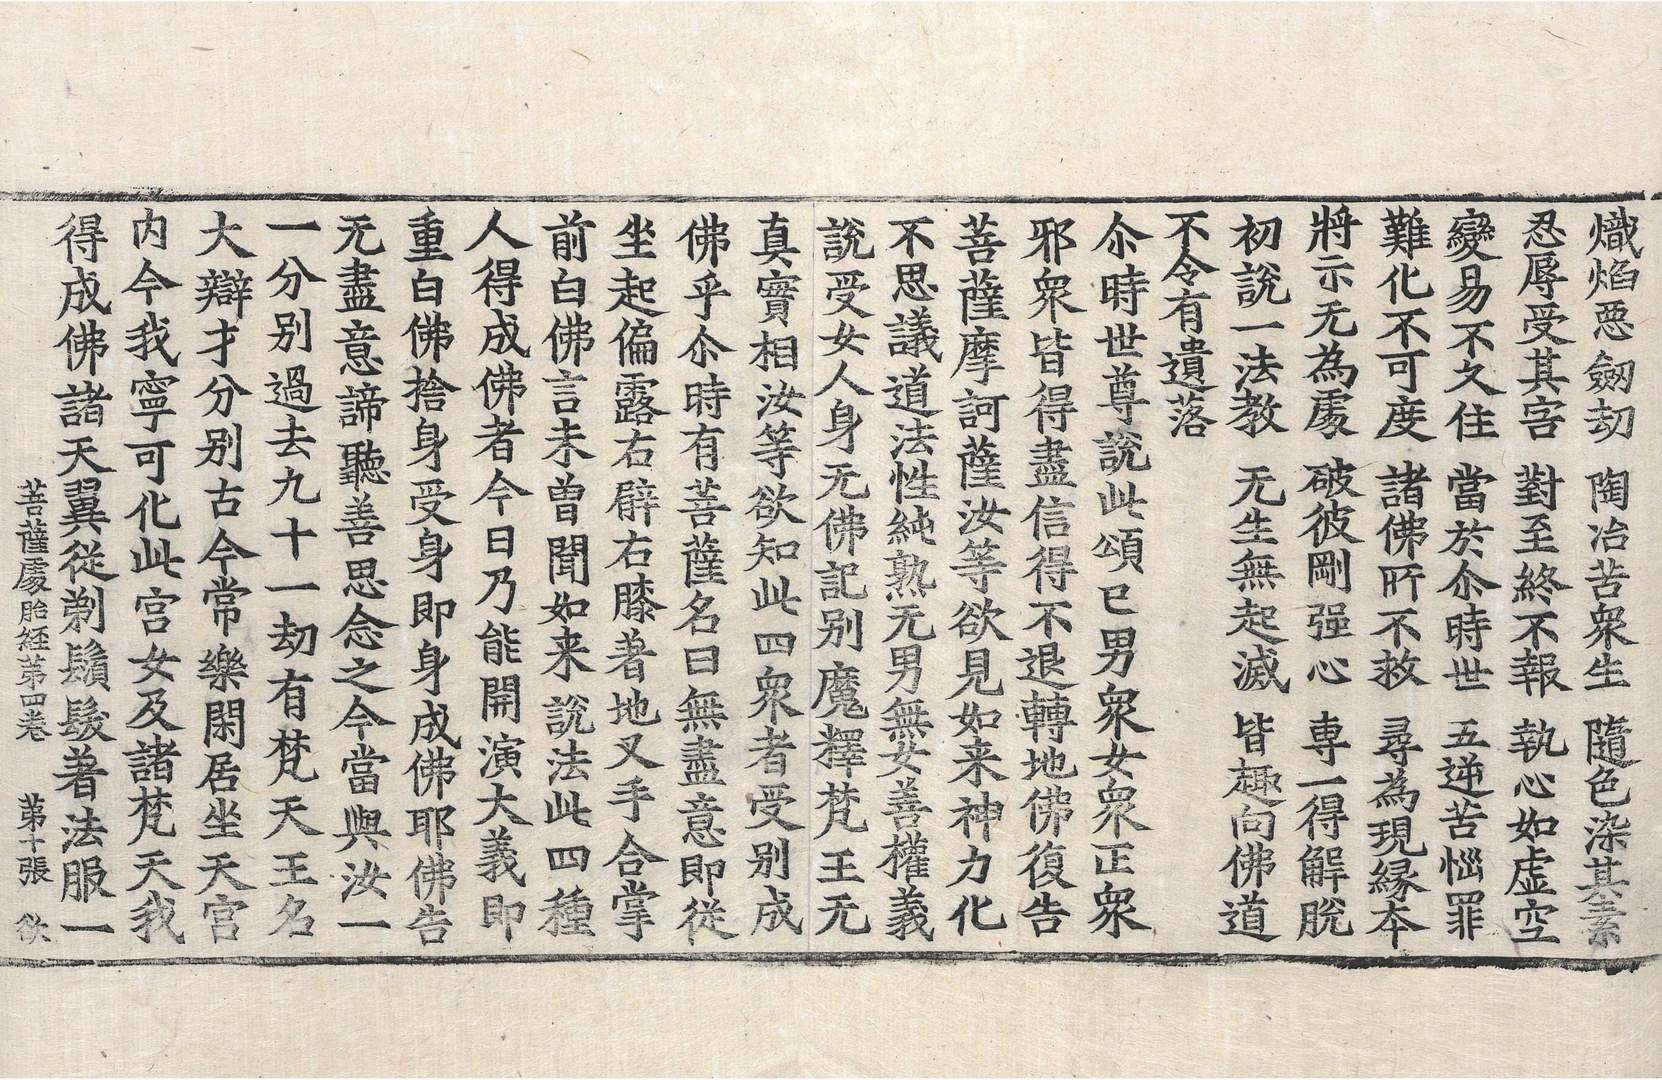 熾焰惡劒刧　陶冶苦衆生　隨色染其素
忍辱受其害　對至終不報　執心如虚空
變易不久住　當於尒時世　五逆苦惱罪
難化不可度　諸佛所不救　尋為現縁本
將示无為處　破彼剛强心　専一得解脫
初說一法教　无生無起滅　皆趣向佛道
不令有遺落
尒時世尊說此頌已男衆女衆正衆
邪衆皆得盡信得不退轉地佛復告
菩薩摩訶薩汝等欲見如来神力化
不思議道法性純熟无男無女善權義
說受女人身无佛記别魔釋梵王无
真實相汝等欲知此四衆者受别成
佛乎尒時有菩薩名曰無盡意即從
坐起偏露右臂右膝著地叉手合掌
前白佛言未曽聞如来說法此四種
人得成佛者今日乃能開演大義即
重白佛捨身受身即身成佛耶佛告
无盡意諦聽善思念之今當與汝一
一分别過去九十一刧有梵天王名
大辯才分别古今常樂閑居坐天宮
内今我寧可化此宮女及諸梵天我
得成佛諸天翼從剃鬚髮著法服一
菩薩處胎経第四卷　第十張　欲